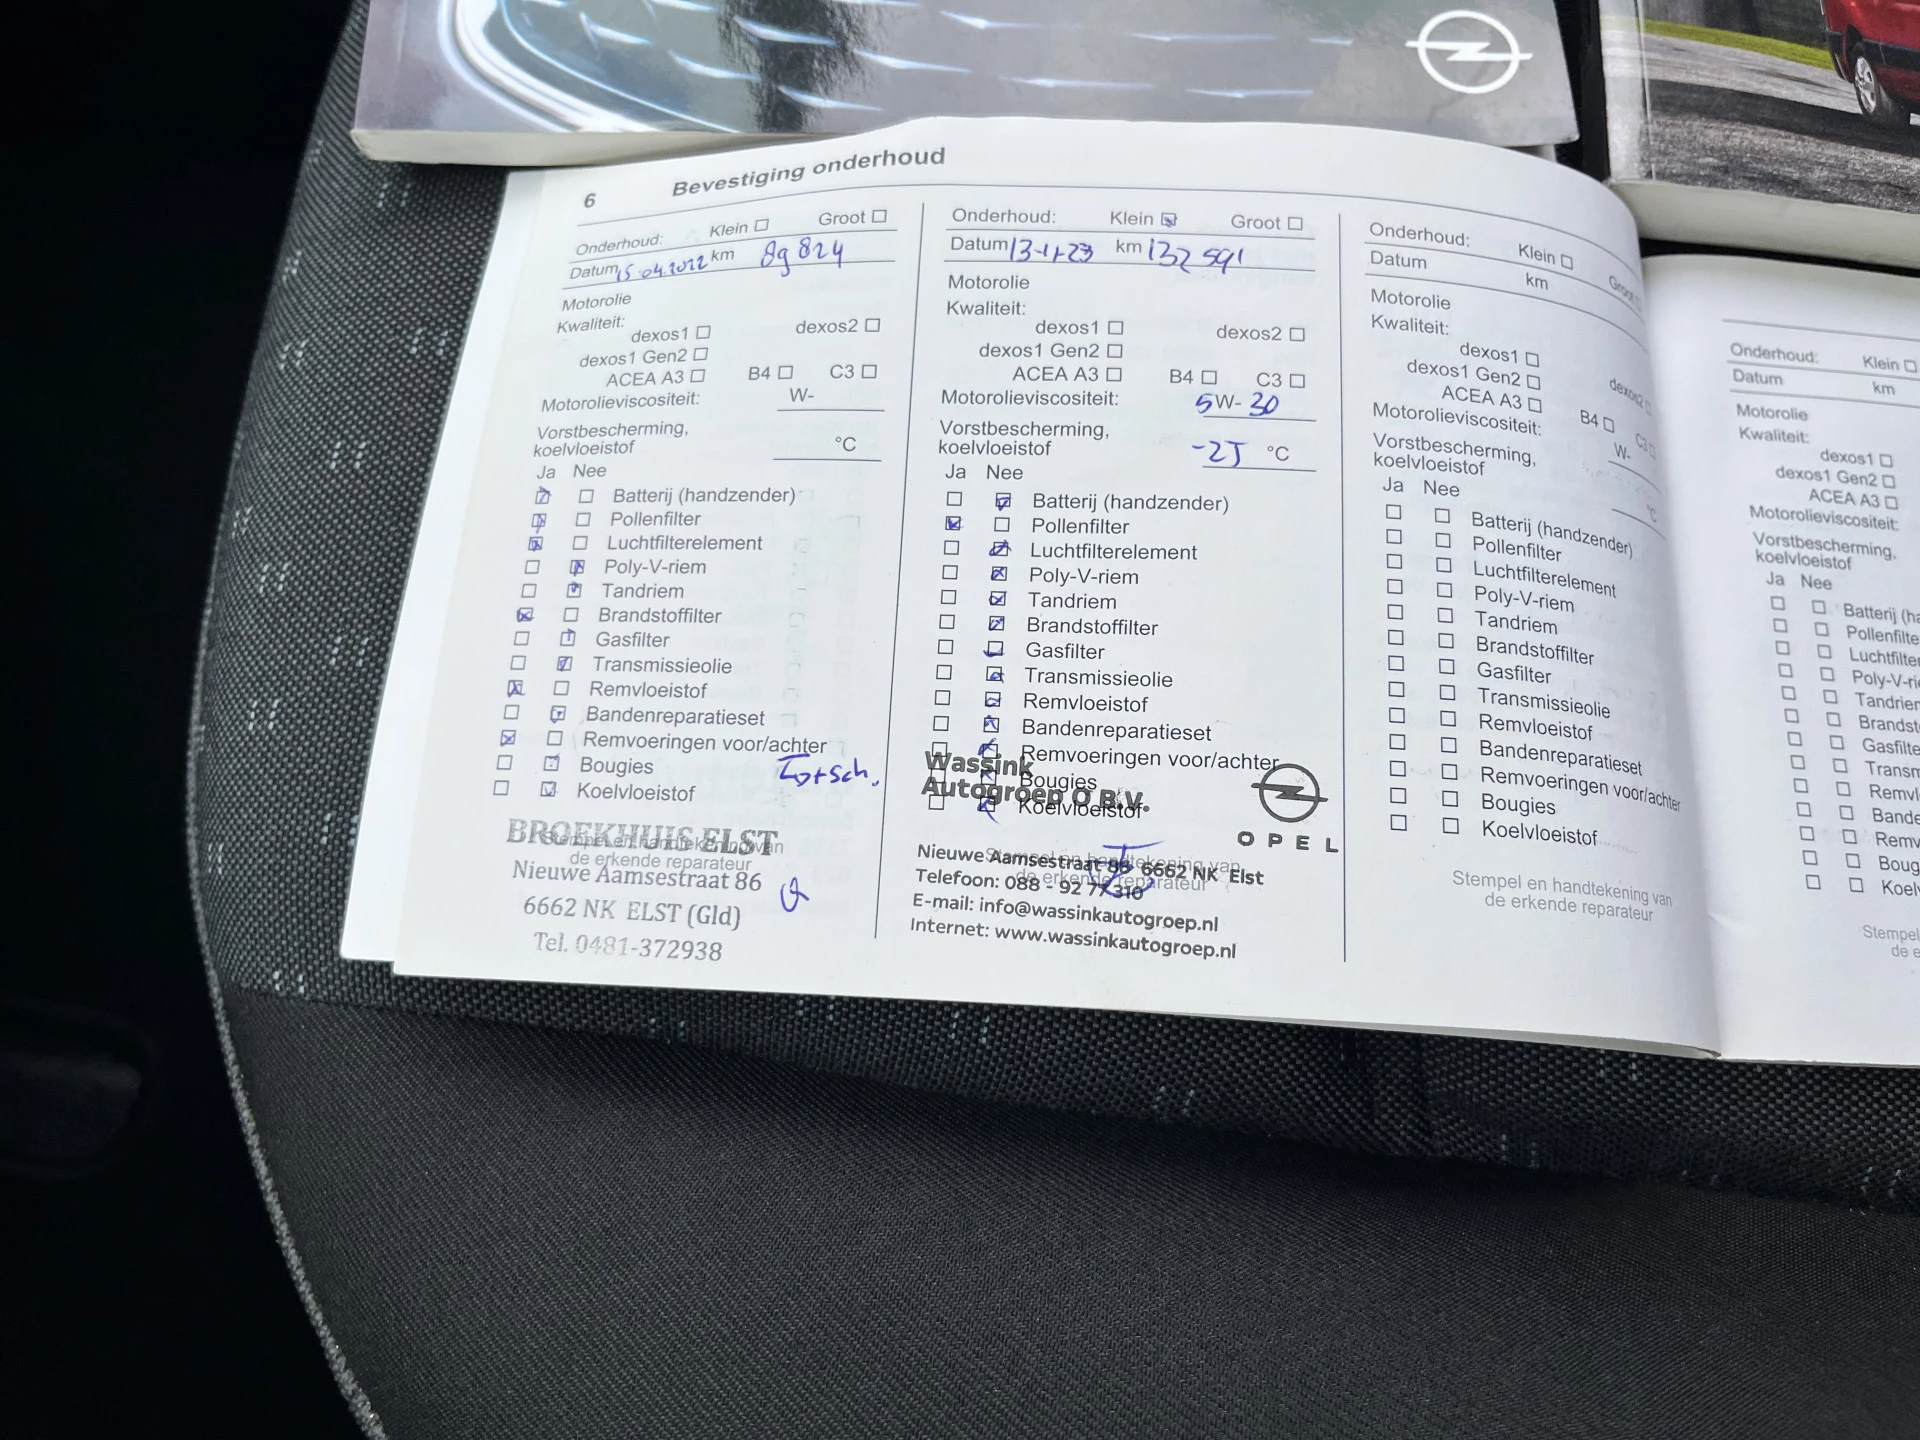 6 Bevestiging onderhoud
Onderhoud: Klein Groot
Datum 15-04-2022 km 89 824
Motorolie
Kwaliteit:
dexos1 dexos2
dexos1 Gen2
ACEA A3 B4 C3
Motorolieviscositeit: W-
Vorstbescherming,
koelvloeistof °C
Ja Nee
Batterij (handzender)
Pollenfilter
Luchtfilterelement
Poly-V-riem
Tandriem
Brandstoffilter
Gasfilter
Transmissieolie
Remvloeistof
Bandenreparatieset
Remvoeringen voor/achter
Bougies
Koelvloeistof
BROEKHUIS ELST
Stempel en handtekening van
de erkende reparateur
Nieuwe Aamsestraat 86
6662 NK ELST (Gld)
Tel. 0481-372938
Onderhoud: Klein Groot
Datum 13-1-23 km 132 591
Motorolie
Kwaliteit:
dexos1 dexos2
dexos1 Gen2
ACEA A3 B4 C3
Motorolieviscositeit: 5W-30
Vorstbescherming,
koelvloeistof -25 °C
Ja Nee
Batterij (handzender)
Pollenfilter
Luchtfilterelement
Poly-V-riem
Tandriem
Brandstoffilter
Gasfilter
Transmissieolie
Remvloeistof
Bandenreparatieset
Remvoeringen voor/achter
Wassink
Bougies
Autogroep O B.V.
Koelvloeistof
OPEL
Stempel en handtekening van
de erkende reparateur
Nieuwe Aamsestraat 86 6662 NK Elst
Telefoon: 088 - 92 77 310
E-mail: info@wassinkautogroep.nl
Internet: www.wassinkautogroep.nl
Onderhoud: Klein Groot
Datum km
Motorolie
Kwaliteit:
dexos1 dexos2
dexos1 Gen2
ACEA A3 B4 C3
Motorolieviscositeit: W-
Vorstbescherming,
koelvloeistof °C
Ja Nee
Batterij (handzender)
Pollenfilter
Luchtfilterelement
Poly-V-riem
Tandriem
Brandstoffilter
Gasfilter
Transmissieolie
Remvloeistof
Bandenreparatieset
Remvoeringen voor/achter
Bougies
Koelvloeistof
Stempel en handtekening van
de erkende reparateur
Onderhoud: Klein
Datum km
Motorolie
Kwaliteit:
dexos1
dexos1 Gen2
ACEA A3
Motorolieviscositeit:
Vorstbescherming,
koelvloeistof
Ja Nee
Batterij (ha
Pollenfilte
Luchtfilter
Poly-V-ri
Tandrier
Brandst
Gasfilte
Transm
Remvl
Bande
Remv
Boug
Koelv
Stempel
de e